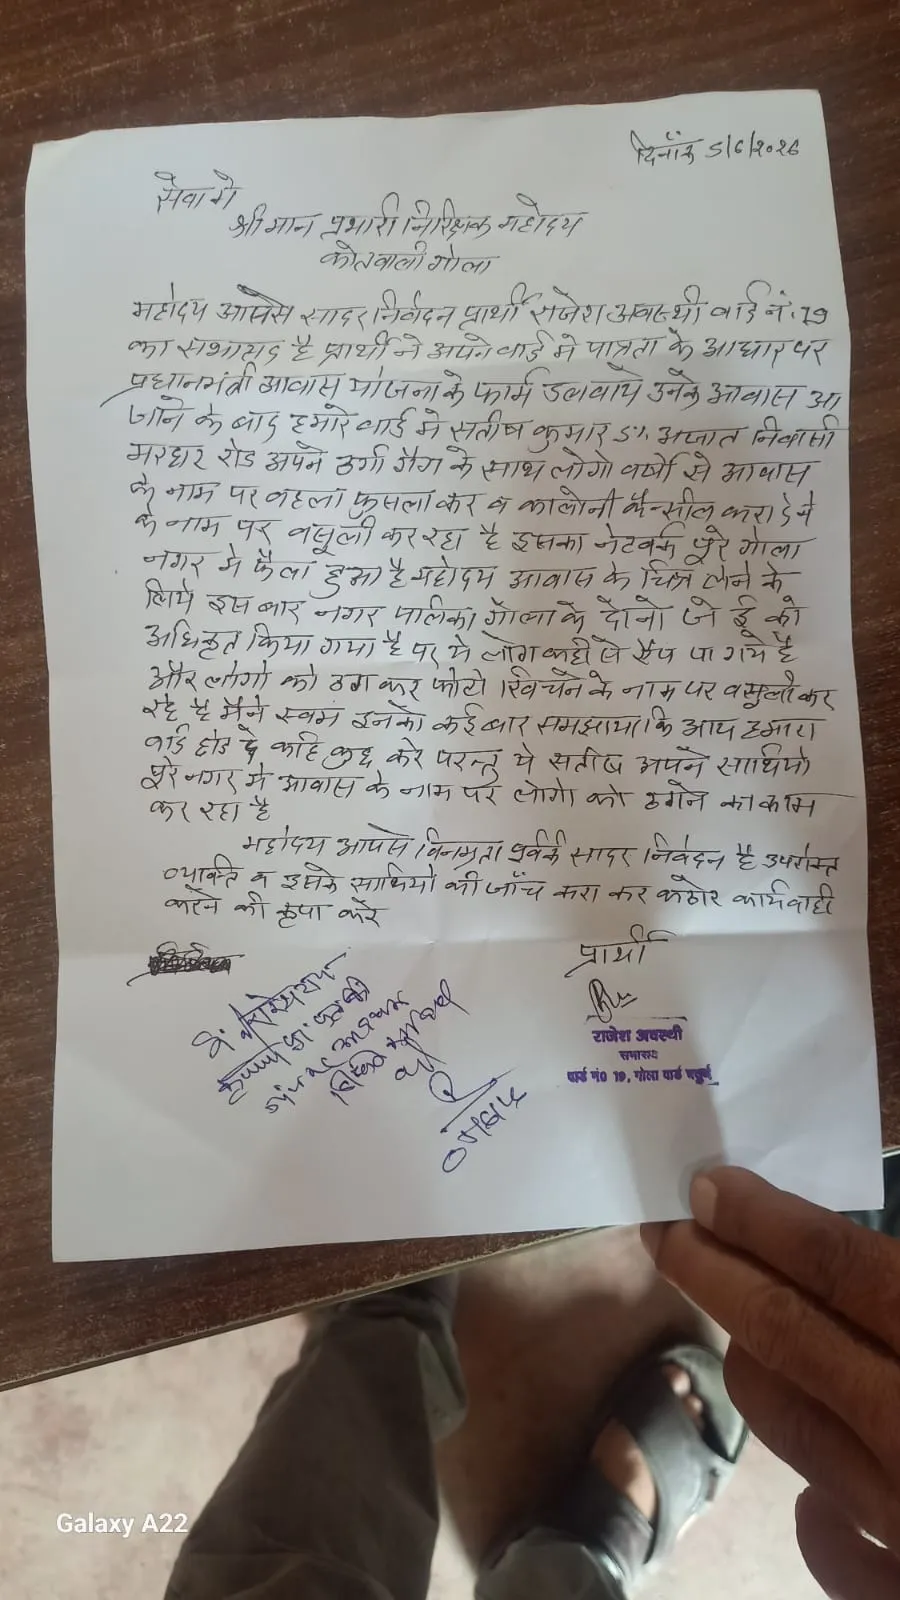 दिनाँक 5/6/2026
सेवा मे
श्री मान प्रभारी निरिक्षक महोदय
कोतवाली गोला
महोदय आपसे सादर निवेदन प्रार्थी राजेश अवस्थी वार्ड नं. 19
का सभासद है प्रार्थी ने अपने वार्ड मे पात्रता के आधार पर
प्रधानमंत्री आवास योजना के फार्म डलवाये उनके आवास आ
जाने के बाद हमारे वार्ड मे सतीष कुमार S/. अज्ञात निवासी
रोड अपने ठगी गैंग के साथ लोगो वर्षो से आवास
के नाम पर वहला फुसला कर व कालोनी कैन्सील करा देने
के नाम पर वसूली कर रहा है इसका नेटवर्क पूरे गोला
नगर मे फैला हुआ है महोदय आवास के चित्र लेने के
लिये इस बार नगर पालिका गोला के दोनो जे ई को
अधिकृत किया गया है पर ये लोग कही से ऐप पा गये है
और लोगो को ठग कर फोटो खिचने के नाम पर वसूली कर
रहे है मैने स्वमं इनको कई बार समझाया कि आप हमारा
वार्ड छोड दे कहि कुछ करे परन्तु ये सतीष अपने साथियो
पूरे नगर मे आवास के नाम पर लोगो को ठगने का काम
कर रहा है
महोदय आपसे विनम्रता पूर्वक सादर निवेदन है उपरोक्त
व्यक्ति व इसके साथियो की जाँच करा कर कठोर कार्यवाही
करने की कृपा करे
प्रार्थी
राजेश अवस्थी
सभासद
वार्ड नं0 19, गोला वार्ड चतुर्थ
Galaxy A22